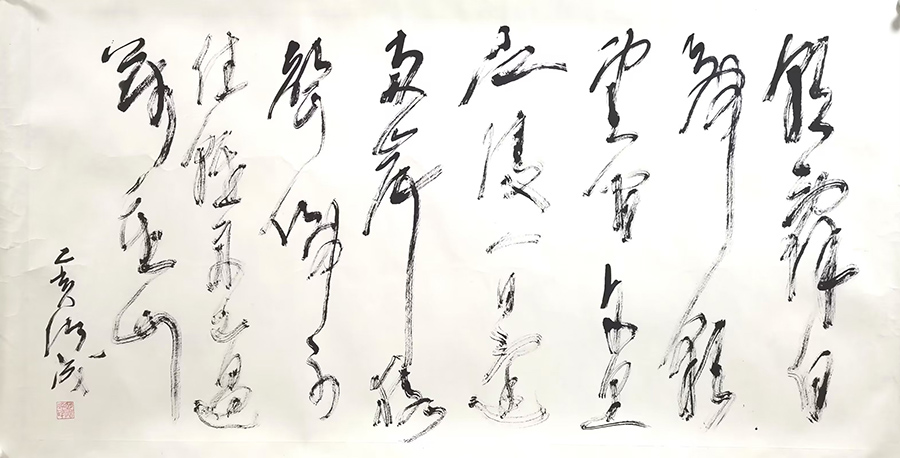 朝辭白
帝彩
雲間千里
江陵一日還
两岸猿
聲啼不
住輕舟已過
萬重山
亥